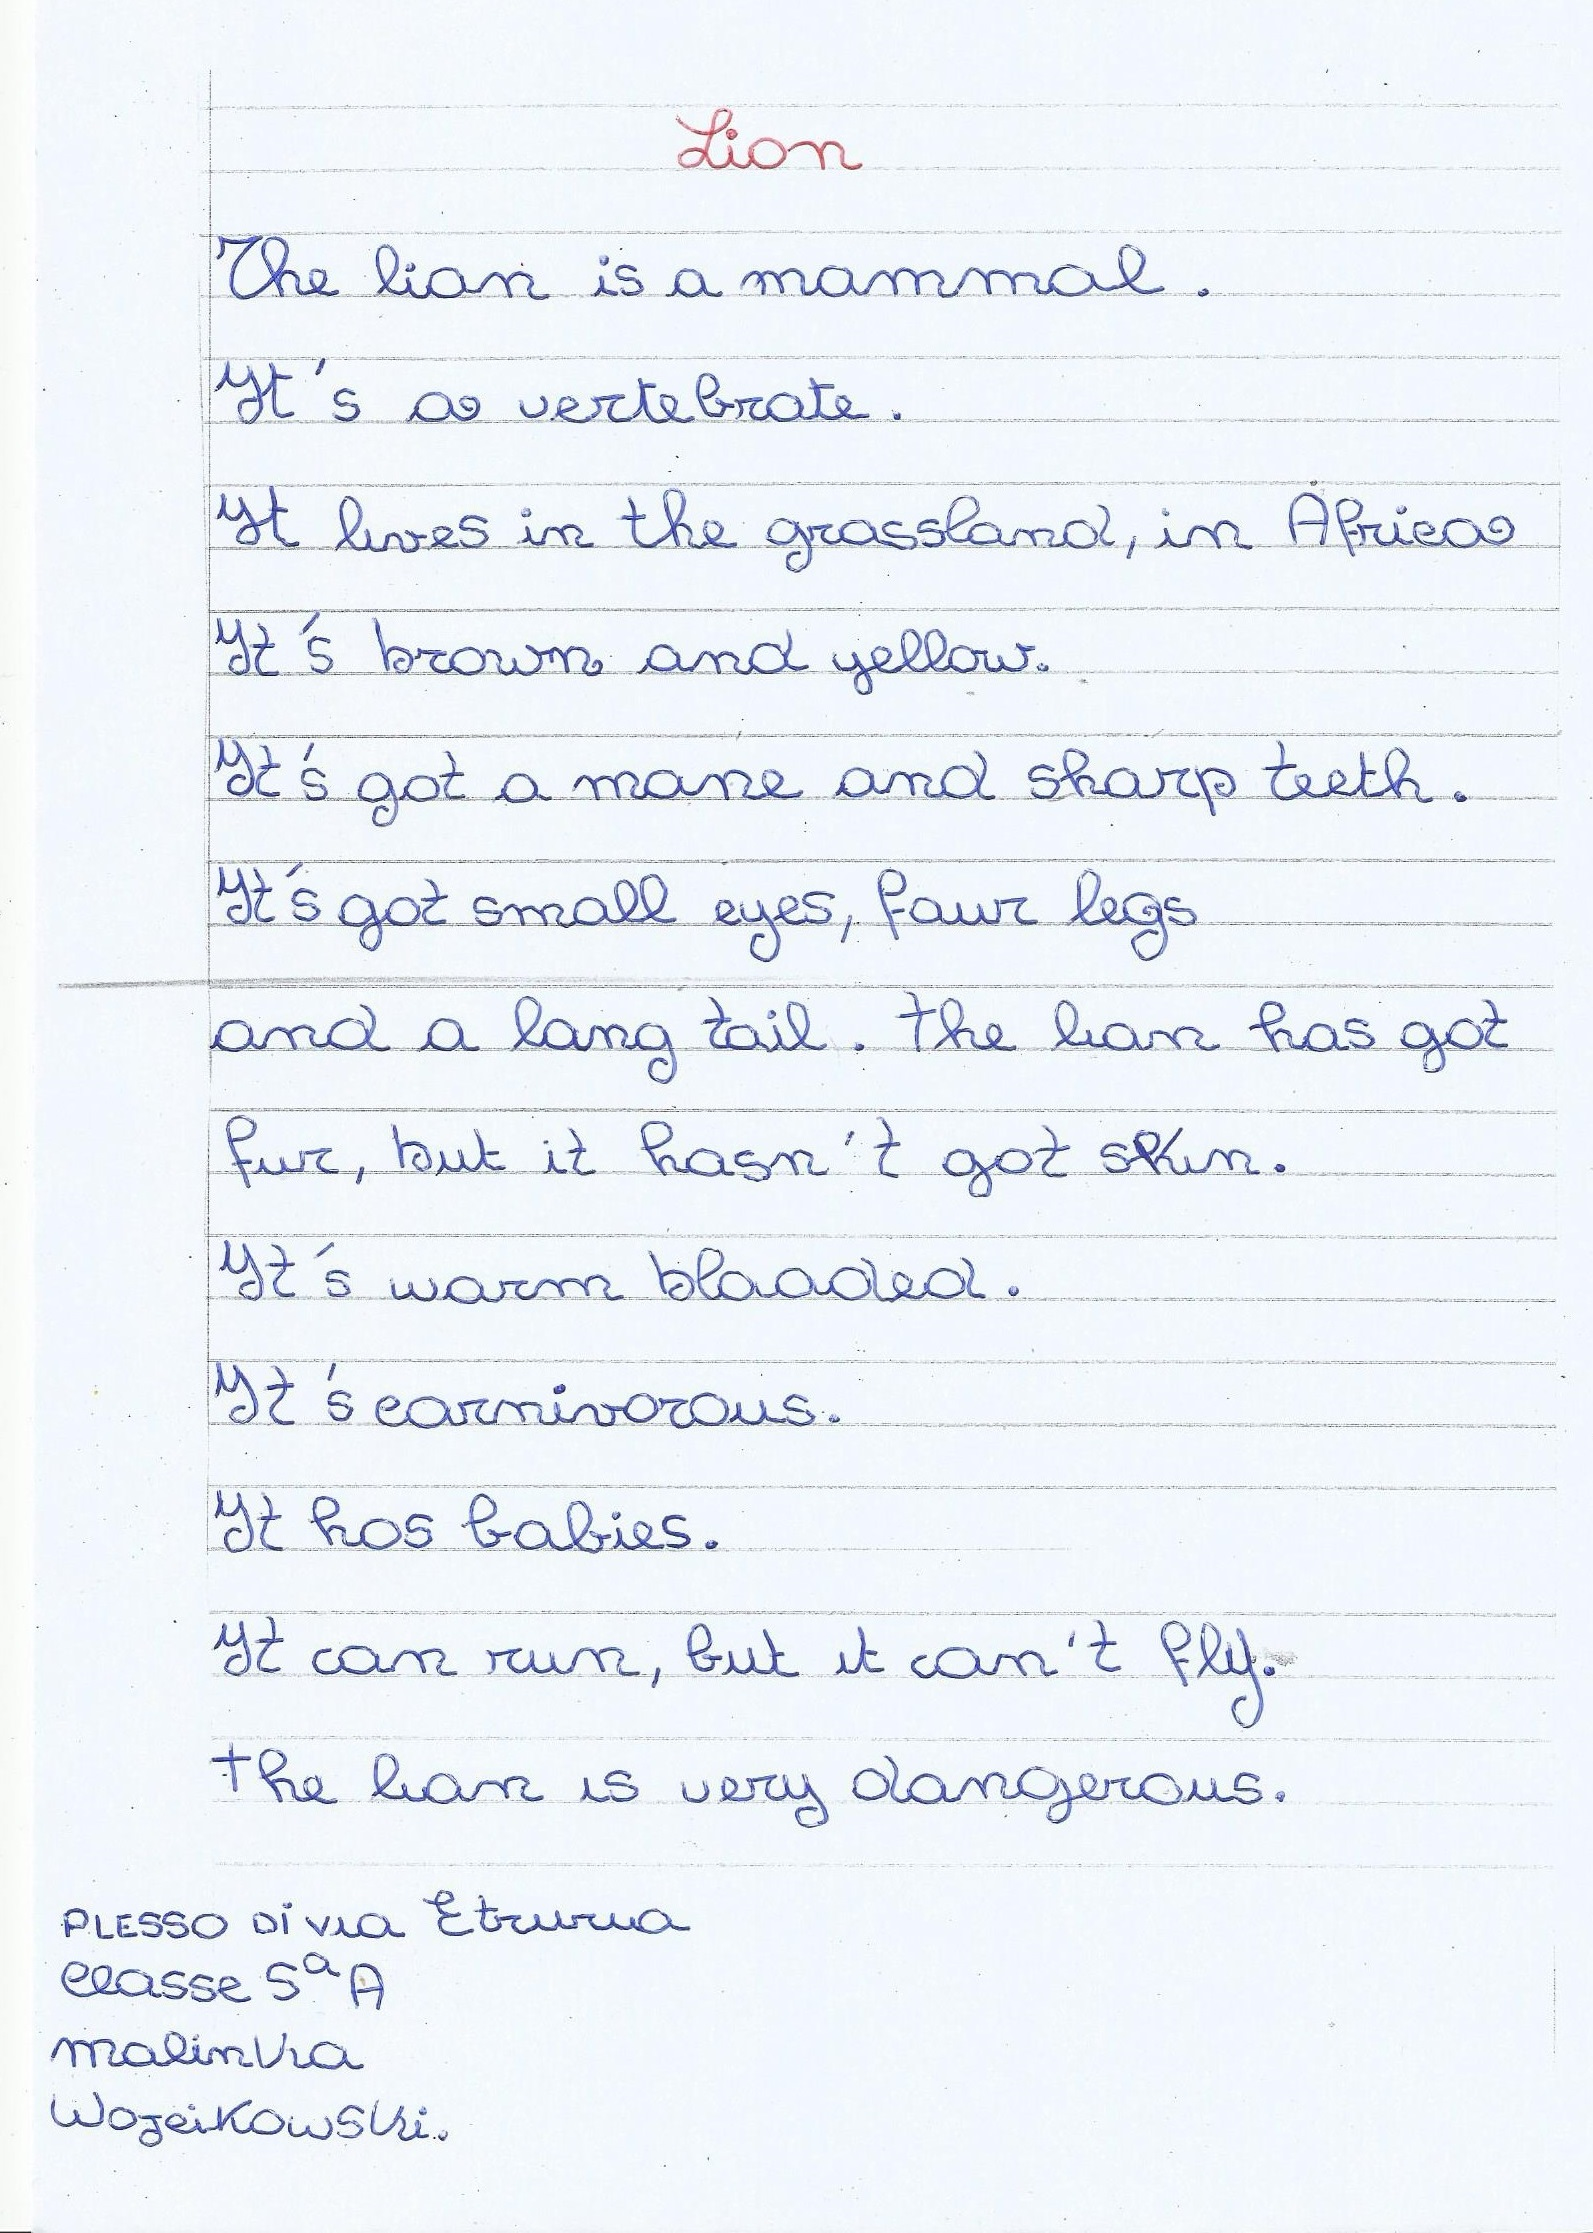 Lion
The lion is a mammal.
It's a vertebrate.
It lives in the grassland, in Africa
It's brown and yellow.
It's got a mane and sharp teeth.
It's got small eyes, four legs
and a long tail. the lion has got
fur, but it hasn't got skin.
It's warm blooded.
It's carnivorous.
It has babies.
It can run, but it can't fly.
the lion is very dangerous.
PLESSO DI VIA Etruria
Classe 5ª A
malinka
Wojcikowski.